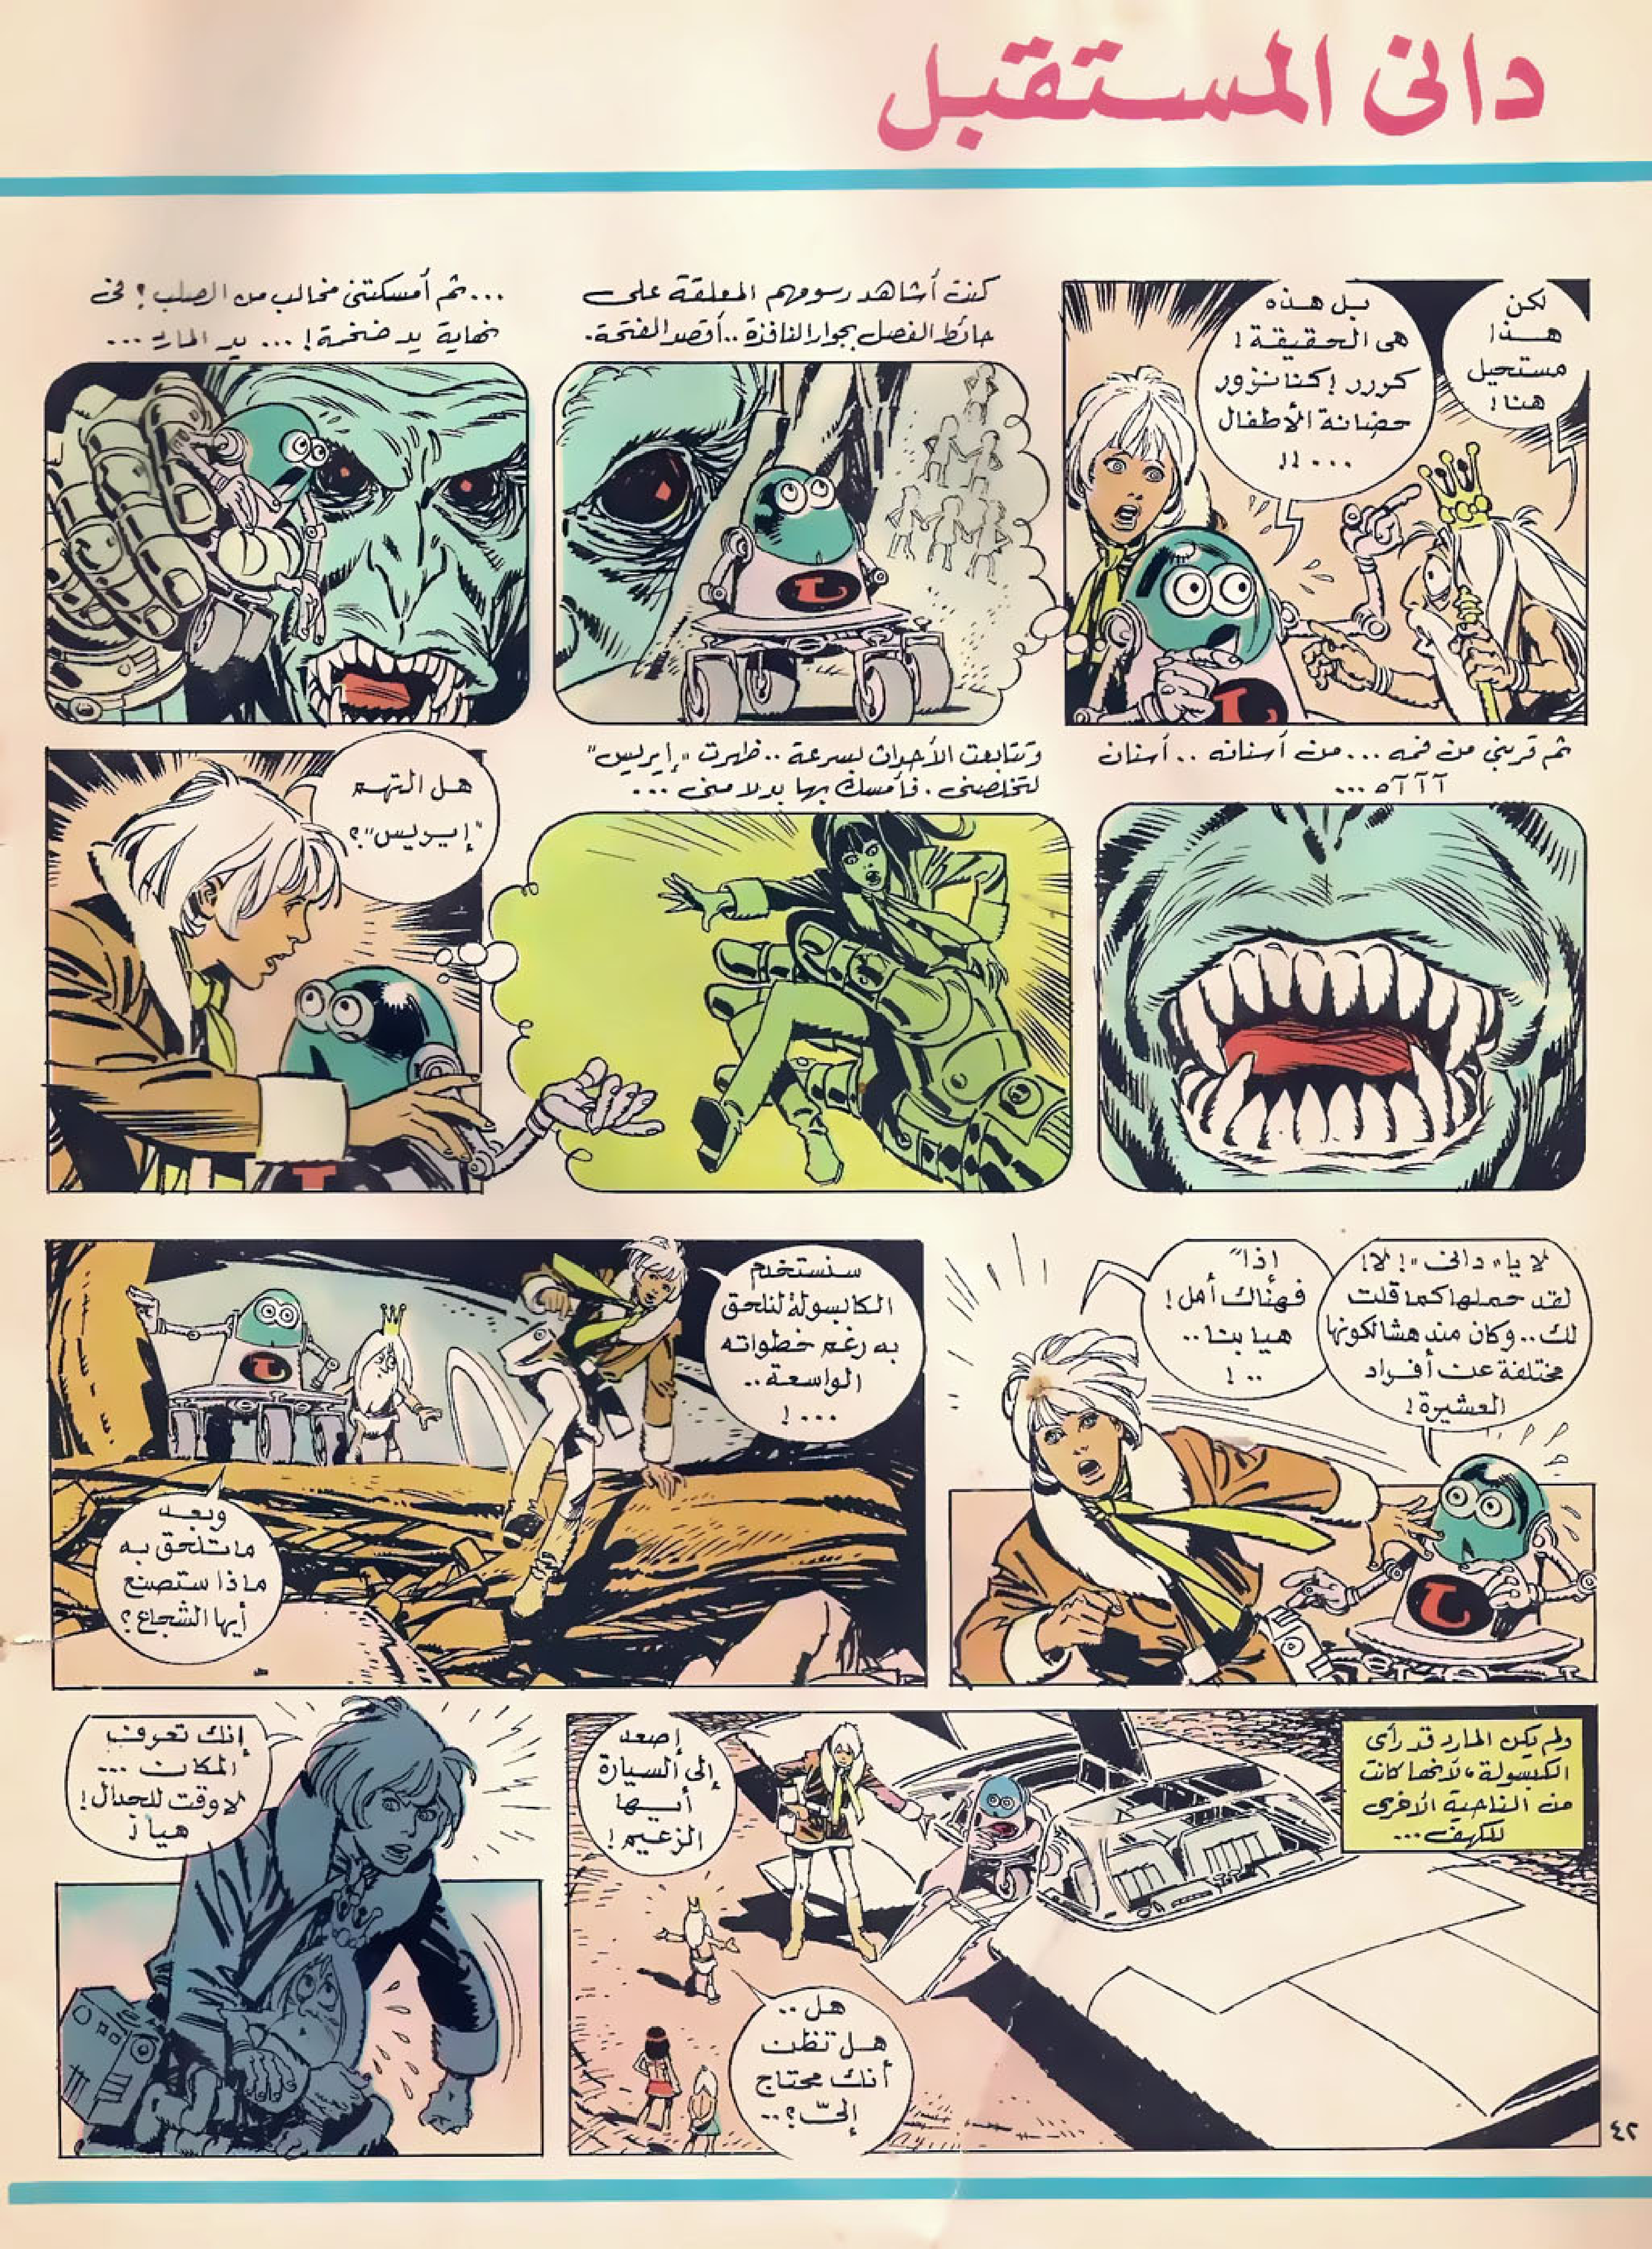 دانى المستقبل
لكن
هذا
مستحيل
هنا!
بل هذه
هى الحقيقة!
كورر! كنا نزور
حضانة الأطفال
...!!
كنت أشاهد رسومهم المعلقة على
حائط الفصل بجوار النافذة.. أقصد الفتحة.
...ثم أمسكتنى مخالب من الصلب؟ فى
نهاية يد ضخمة!... يد المارد...
ثم قربنى من فمه... من أسنانه.. أسنان
آ آ آ آه...
وتتابعت الأحداث بسرعة.. ظهرت "إيريس"
لتخلصنى. فأمسك بها بدلا منى...
هل التهم
"إيريس"؟
لا يا "دانى"! لا!
لقد حملها كما قلت
لك.. وكان مندهشا لكونها
مختلفة عن أفراد
العشيرة!
اذاً
فهناك أمل!
هيا بنا..
..!
سنستخدم
الكابسولة لنلحق
به رغم خطواته
الواسعة..
...!
وبعد
ما تلحق به
ماذا ستصنع
أيها الشجاع؟
ولم يكن المارد قد رأى
الكبسولة، لأنها كانت
من الناحية الأخرى
للكهف...
إصعد
إلى السيارة
أيها
الزعيم!
هل..
هل تظن
أنك محتاج
إلىّ؟..
إنك تعرف
المكان...
لا وقت للجدال!
هيا!
٤٢